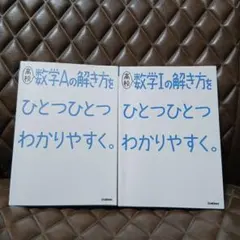 高校 数学Aの解き方を
ひとつひとつ
わかりやすく。
高校 数学Iの解き方を
ひとつひとつ
わかりやすく。